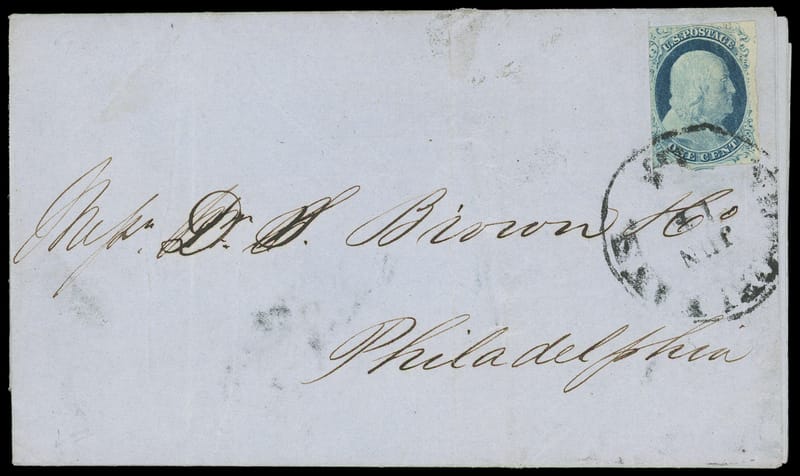 U.S. POSTAGE
ONE CENT
Messrs. D. S. Brown & Co
Philadelphia
JUN